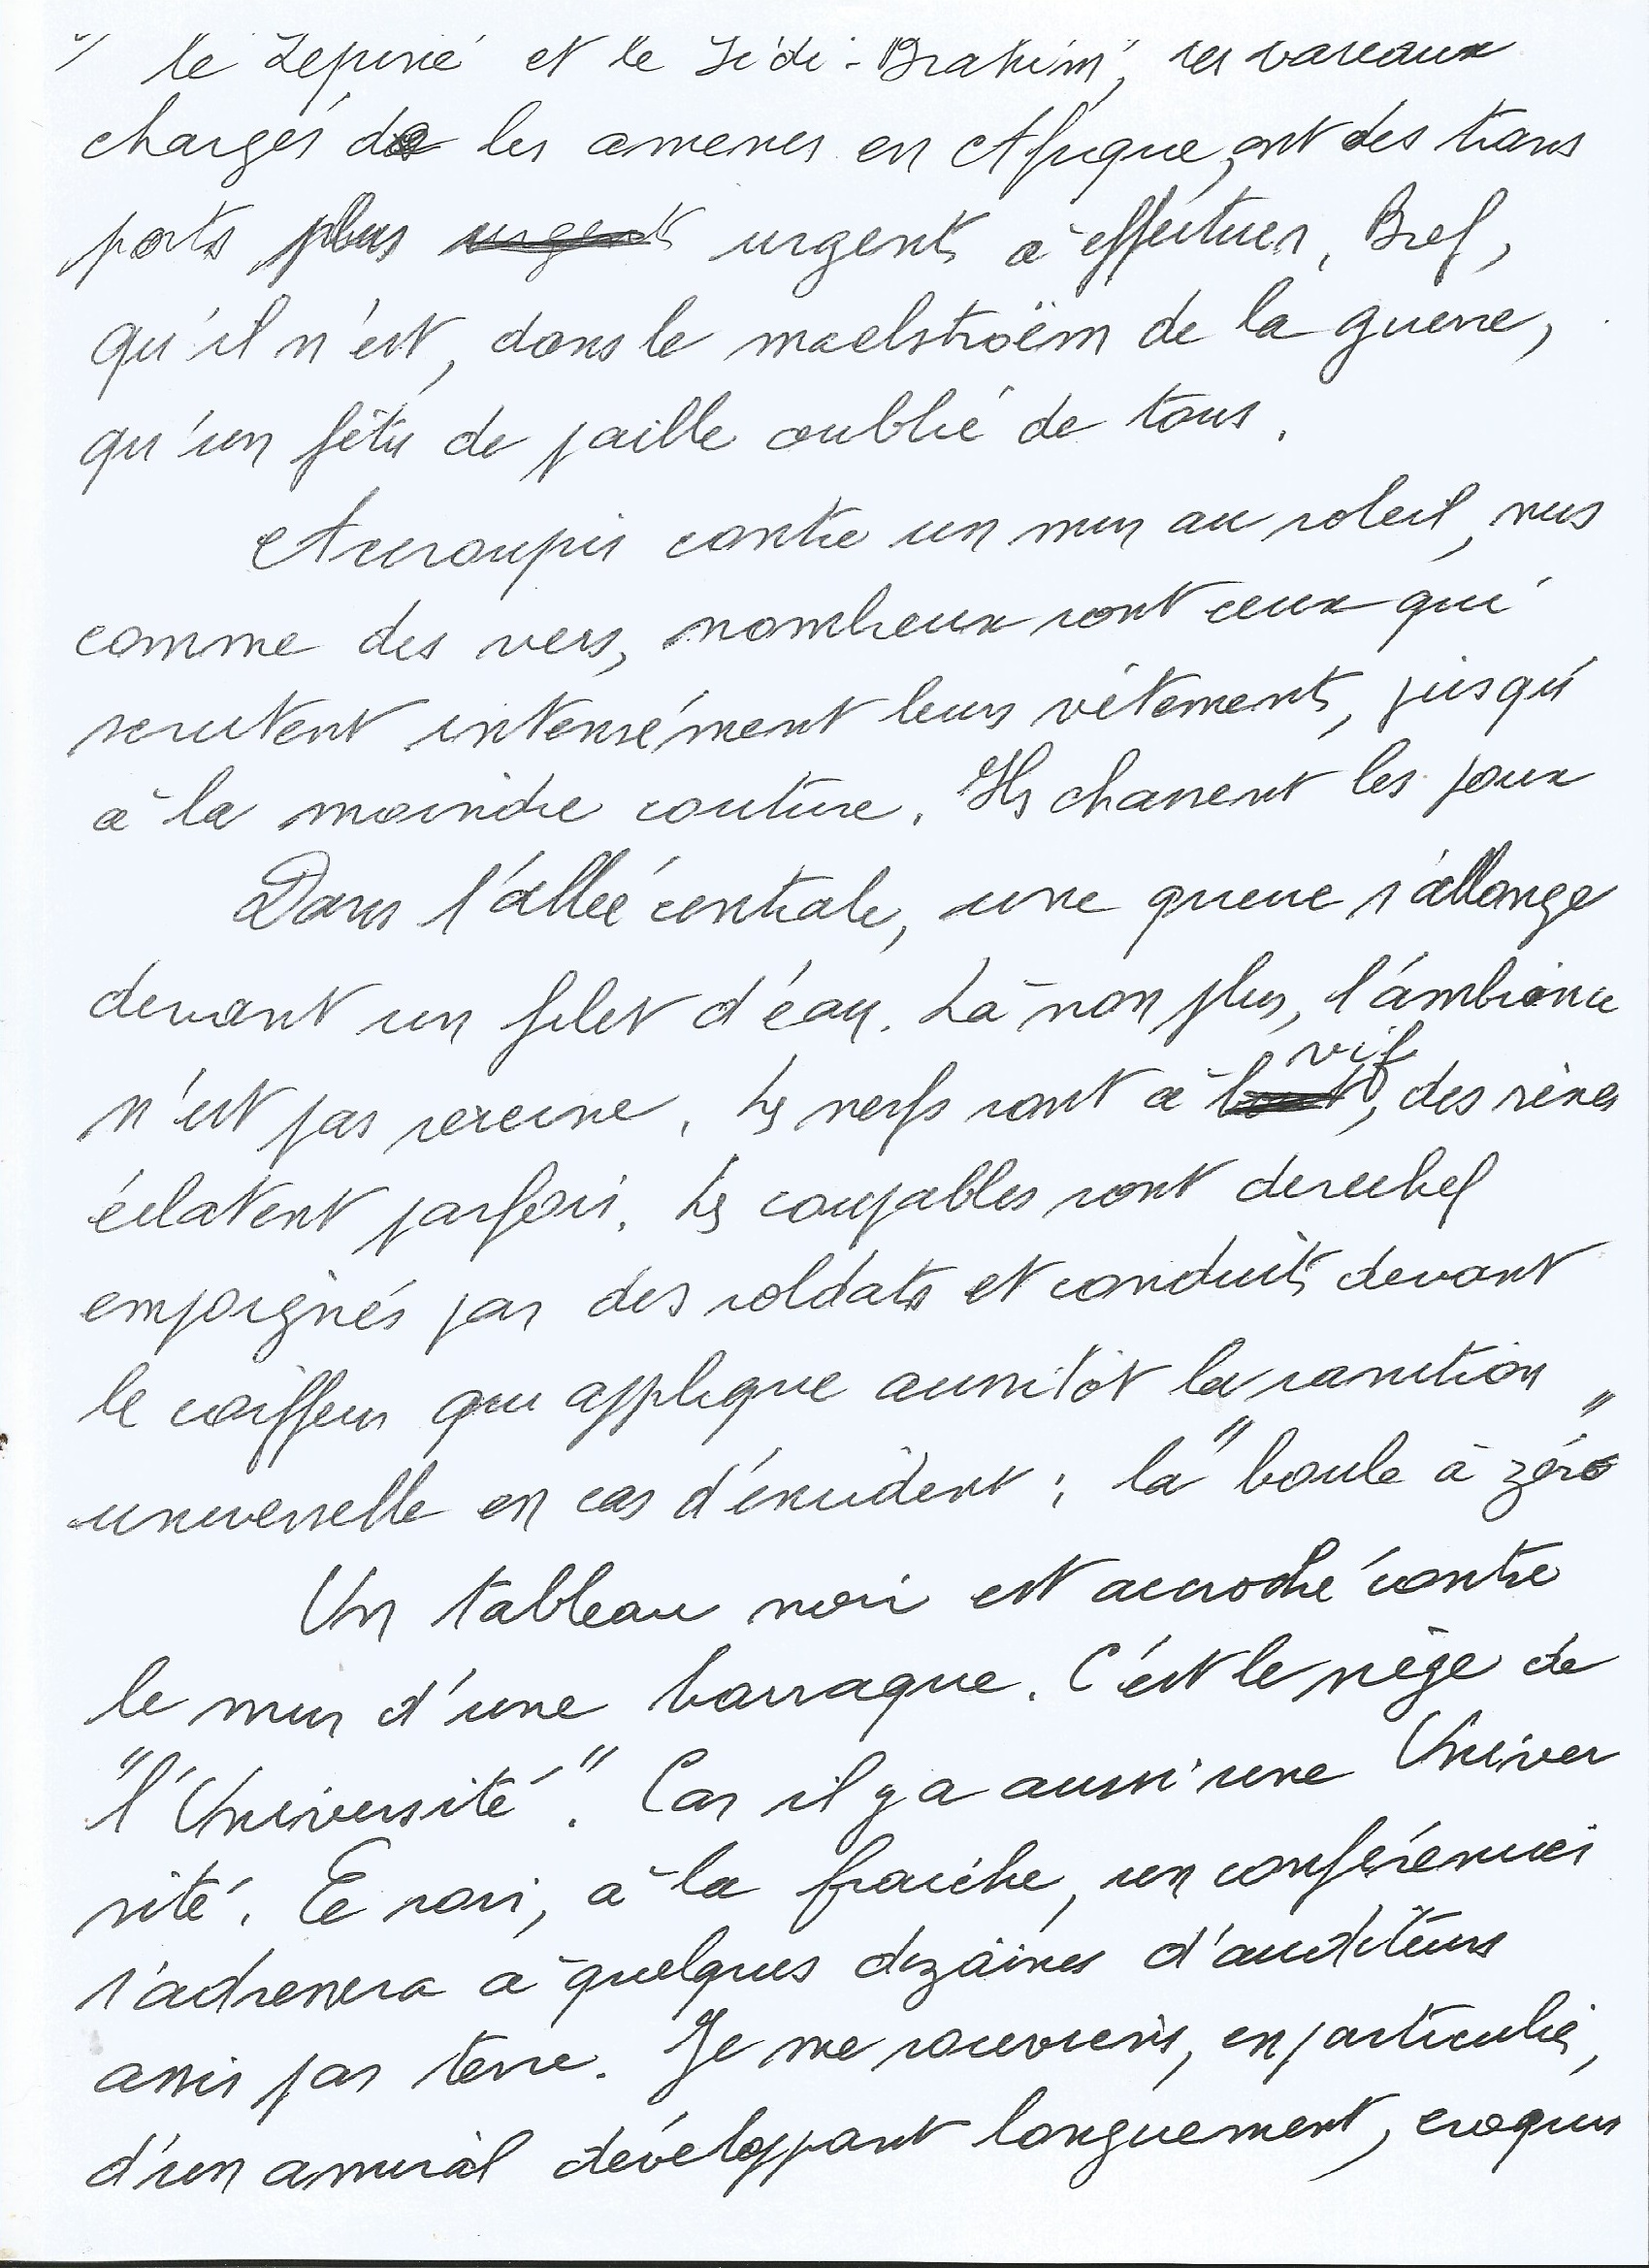 le Lépiné et le Sidi-Brahim, ses vareaux
chargés de les amener en Afrique, ont des trans
ports plus urgents urgents à effectuer. Bref,
qu'il n'est, dans le maelströëm de la guerre,
qu'un fétu de paille oublié de tous.
Accroupis contre un mur au soleil, nus
comme des vers, nombreux sont ceux qui
scrutent intensément leurs vêtements, jusqu'
à la moindre couture. Ils chassent les poux
Dans l'allée centrale, une queue s'allonge
devant un filet d'eau. Là non plus, l'ambiance
vif
n'est pas sereine. Les nerfs sont à bout, des rixes
éclatent parfois. Les coupables sont derechef
empoignés par des soldats et conduits devant
le coiffeur qui applique aussitôt la sanction
universelle en cas d'incident : la "boule à zéro"
Un tableau noir est accroché contre
le mur d'une barraque. C'est le siège de
"l'Université". Car il y a aussi une Univer
sité. Ce soir, à la fraîche, un conférencier
s'adressera à quelques dizaines d'auditeurs
assis par terre. Je me souviens, en particulier,
d'un amiral développant longuement, croquis